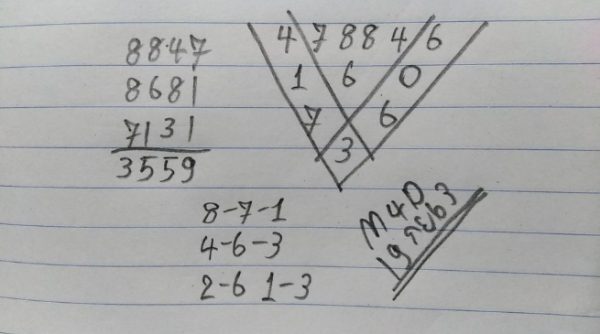 8847
8681
7131
3559
4 7 8 8 4 6
1 6 0
7 6
3
8-7-1
4-6-3
2-6 1-3
M4D
19 กย63